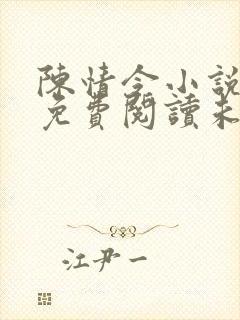 陳情令小說
免費閱讀未
江尹一